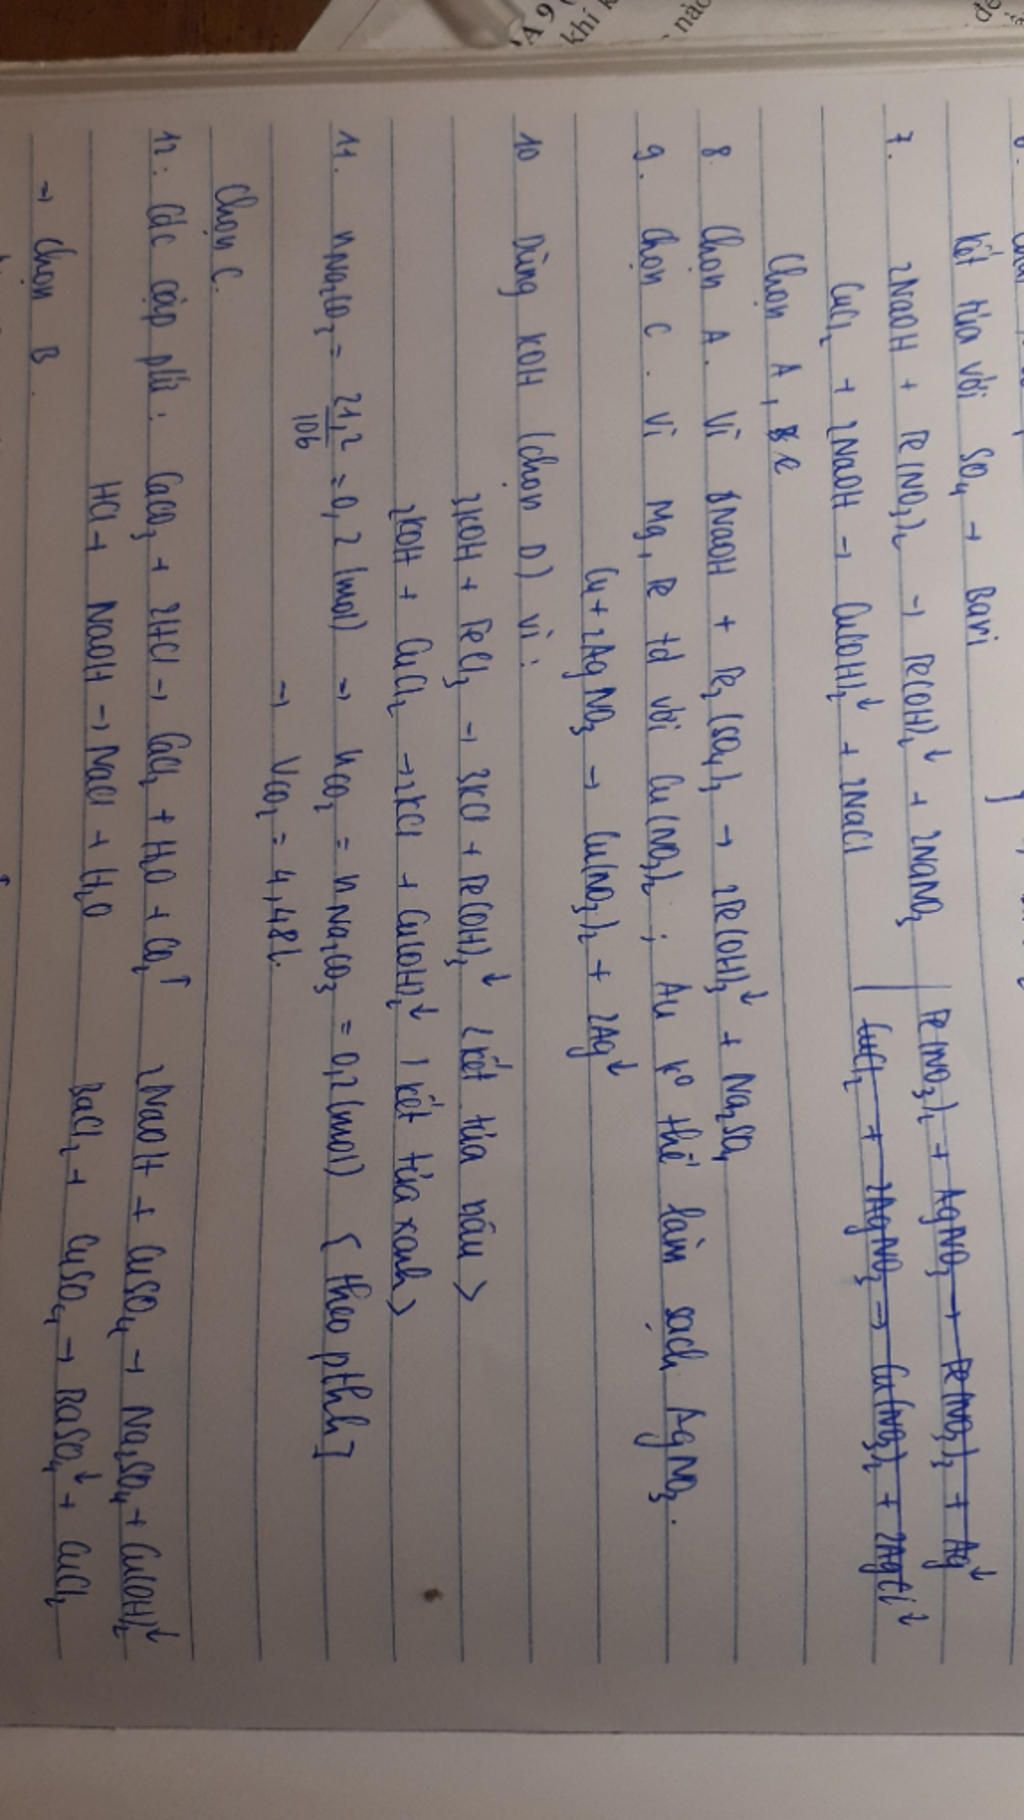 kết tủa với SO4 → Bari
7. 2NaOH + Fe(NO3)2 → Fe(OH)2↓ + 2NaNO3 | Fe(NO3)2 + AgNO3 → Fe(NO3)3 + Ag↓
CuCl2 + 2NaOH → Cu(OH)2↓ + 2NaCl | CuCl2 + 2AgNO3 → Cu(NO3)2 + 2AgCl↓
Chọn A, c
8. Chọn A. Vì NaOH + Fe2(SO4)3 → 2Fe(OH)3↓ + Na2SO4
9. Chọn C. Vì Mg, Fe td với Cu(NO3)2 ; Au k° thể làm sạch AgNO3.
Cu + 2AgNO3 → Cu(NO3)2 + 2Ag↓
10 Dùng KOH (chọn D) vì :
3KOH + FeCl3 → 3KCl + Fe(OH)3↓ (kết tủa nâu)
2KOH + CuCl2 → 2KCl + Cu(OH)2↓ (kết tủa xanh)
11. nNa2CO3 = 21,2/106 = 0,2 (mol) → nCO2 = nNa2CO3 = 0,2 (mol) { theo pthh }
→ VCO2 = 4,48 l.
Chọn C.
12: Các cặp pứ : CaCO3 + 2HCl → CaCl2 + H2O + CO2↑ 2NaOH + CuSO4 → Na2SO4 + Cu(OH)2↓
HCl + NaOH → NaCl + H2O BaCl2 + CuSO4 → BaSO4↓ + CuCl2
→ Chọn B.